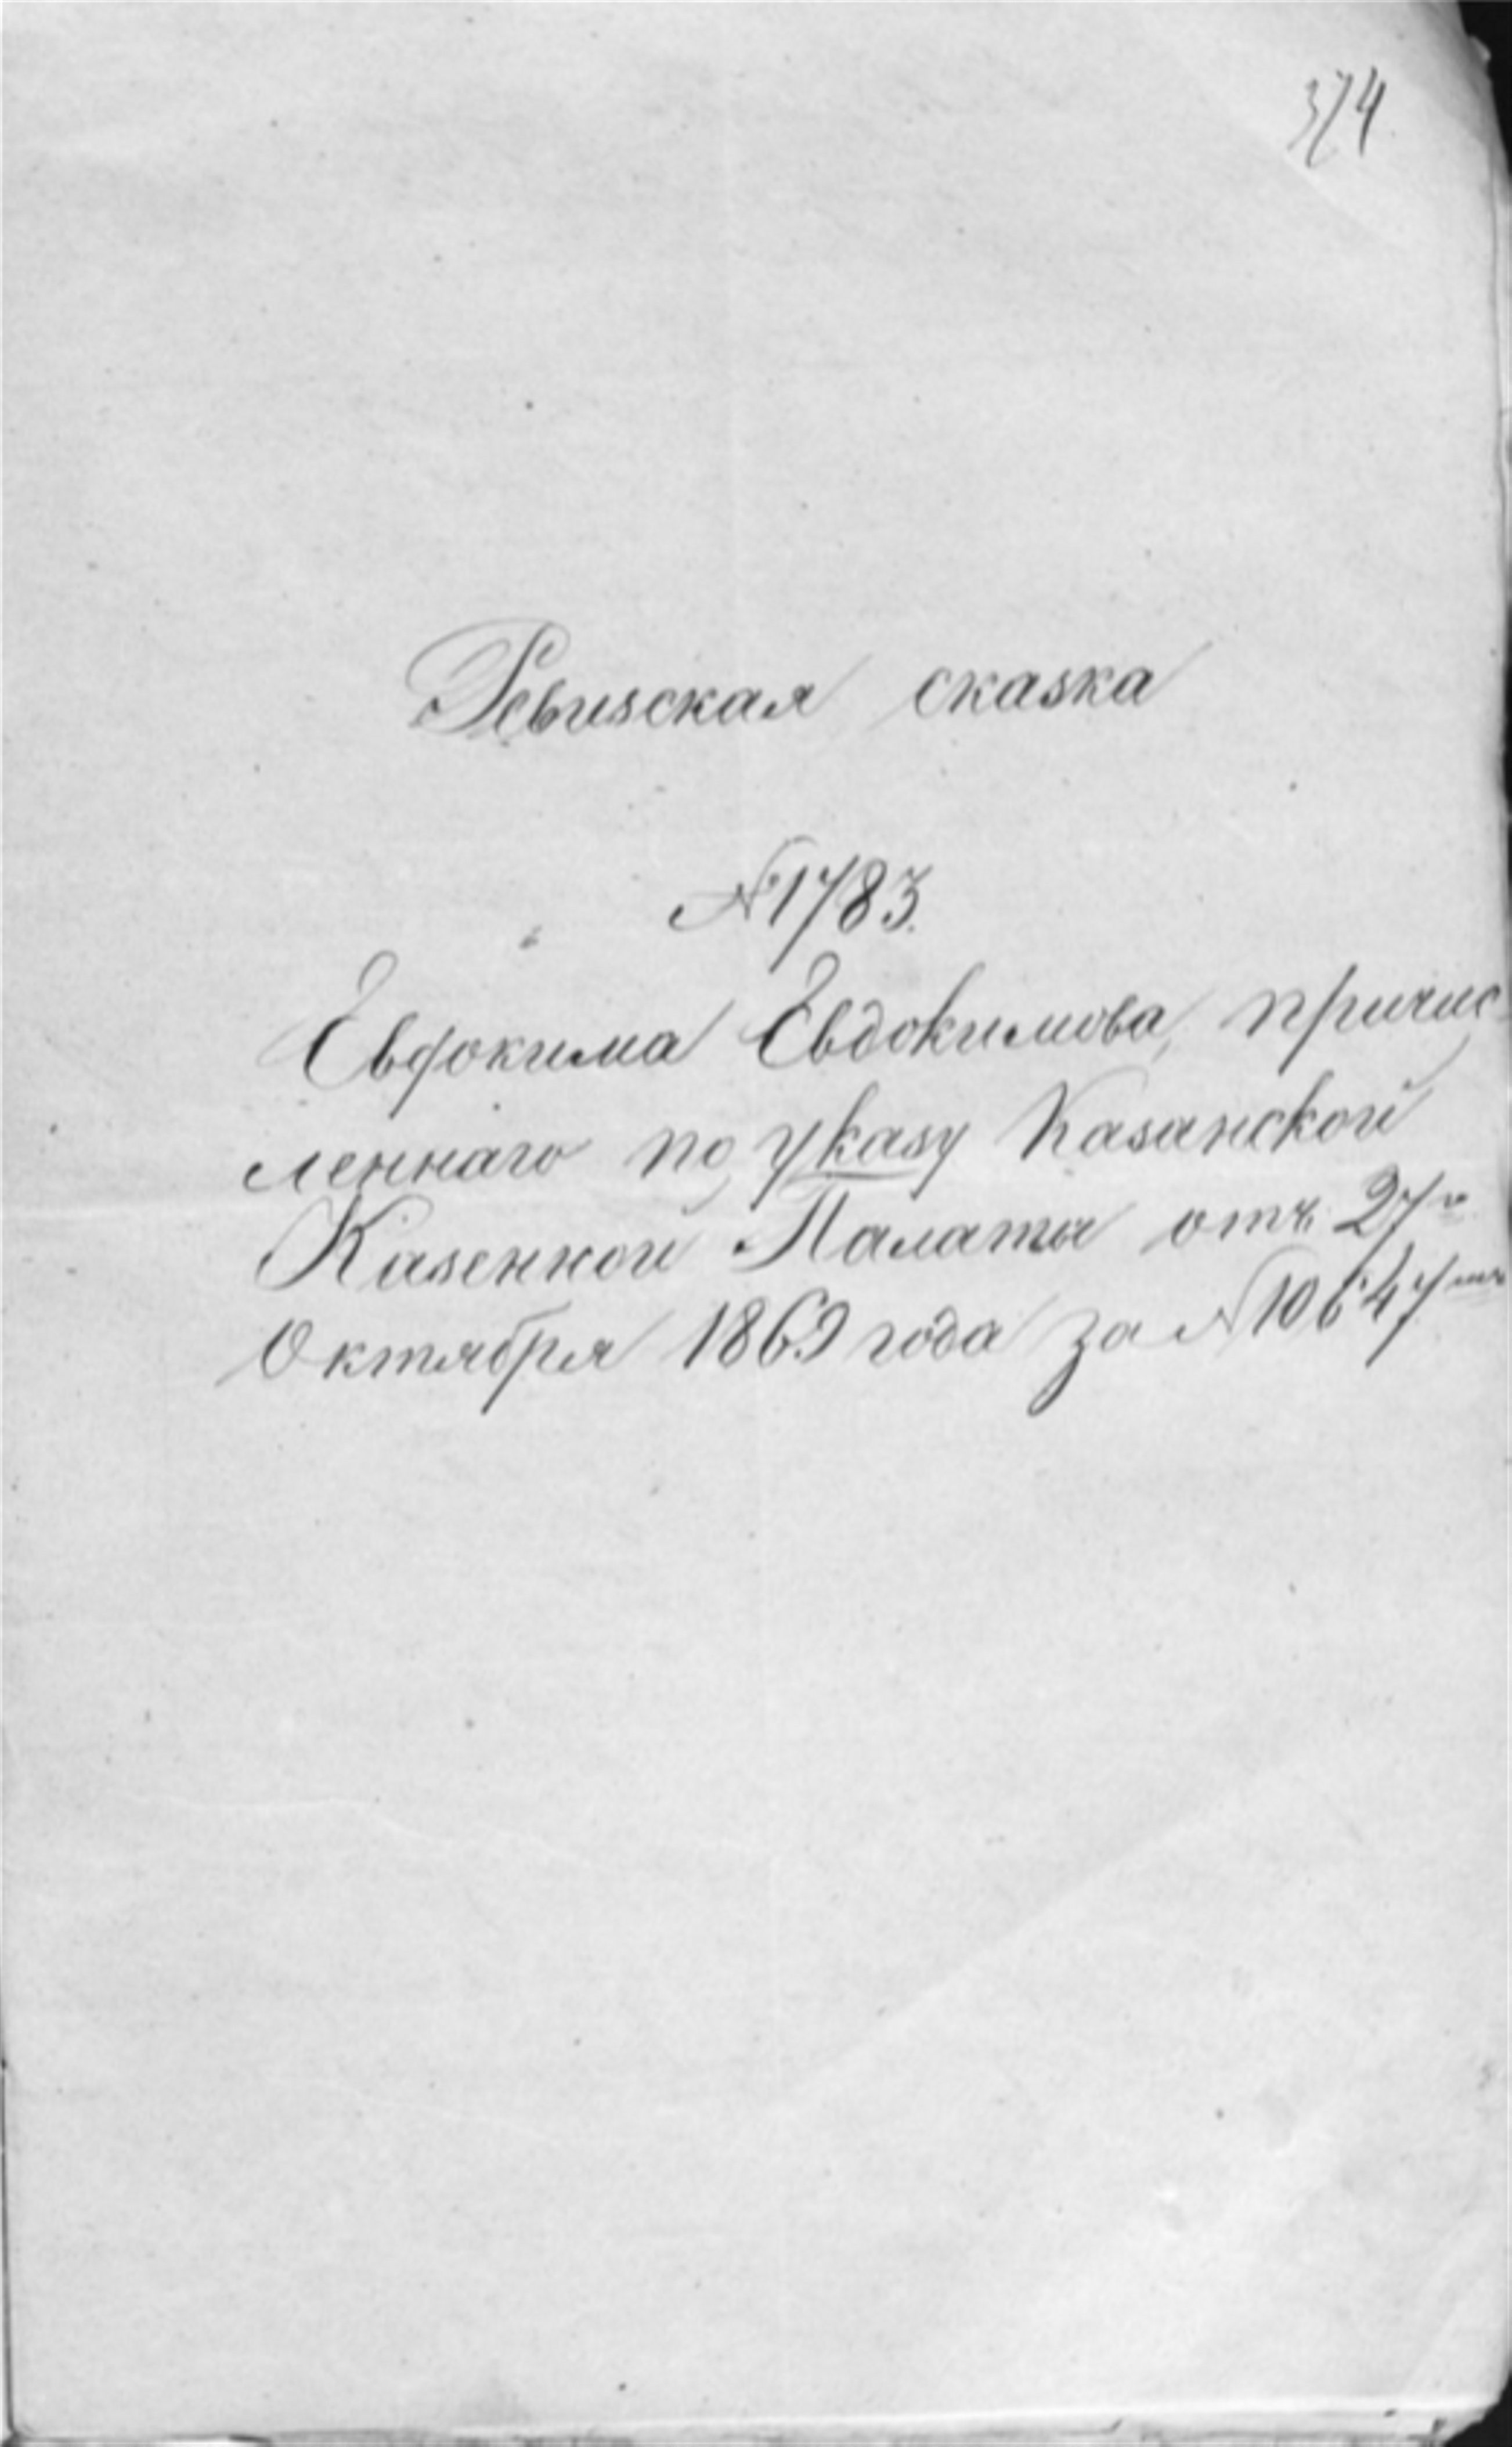 374
Ревизская сказка
№ 1783.
Евдокима Евдокимова, причис
леннаго по указу Казанской
Казенной Палаты отъ 27го
Октября 1869 года за № 10647мъ